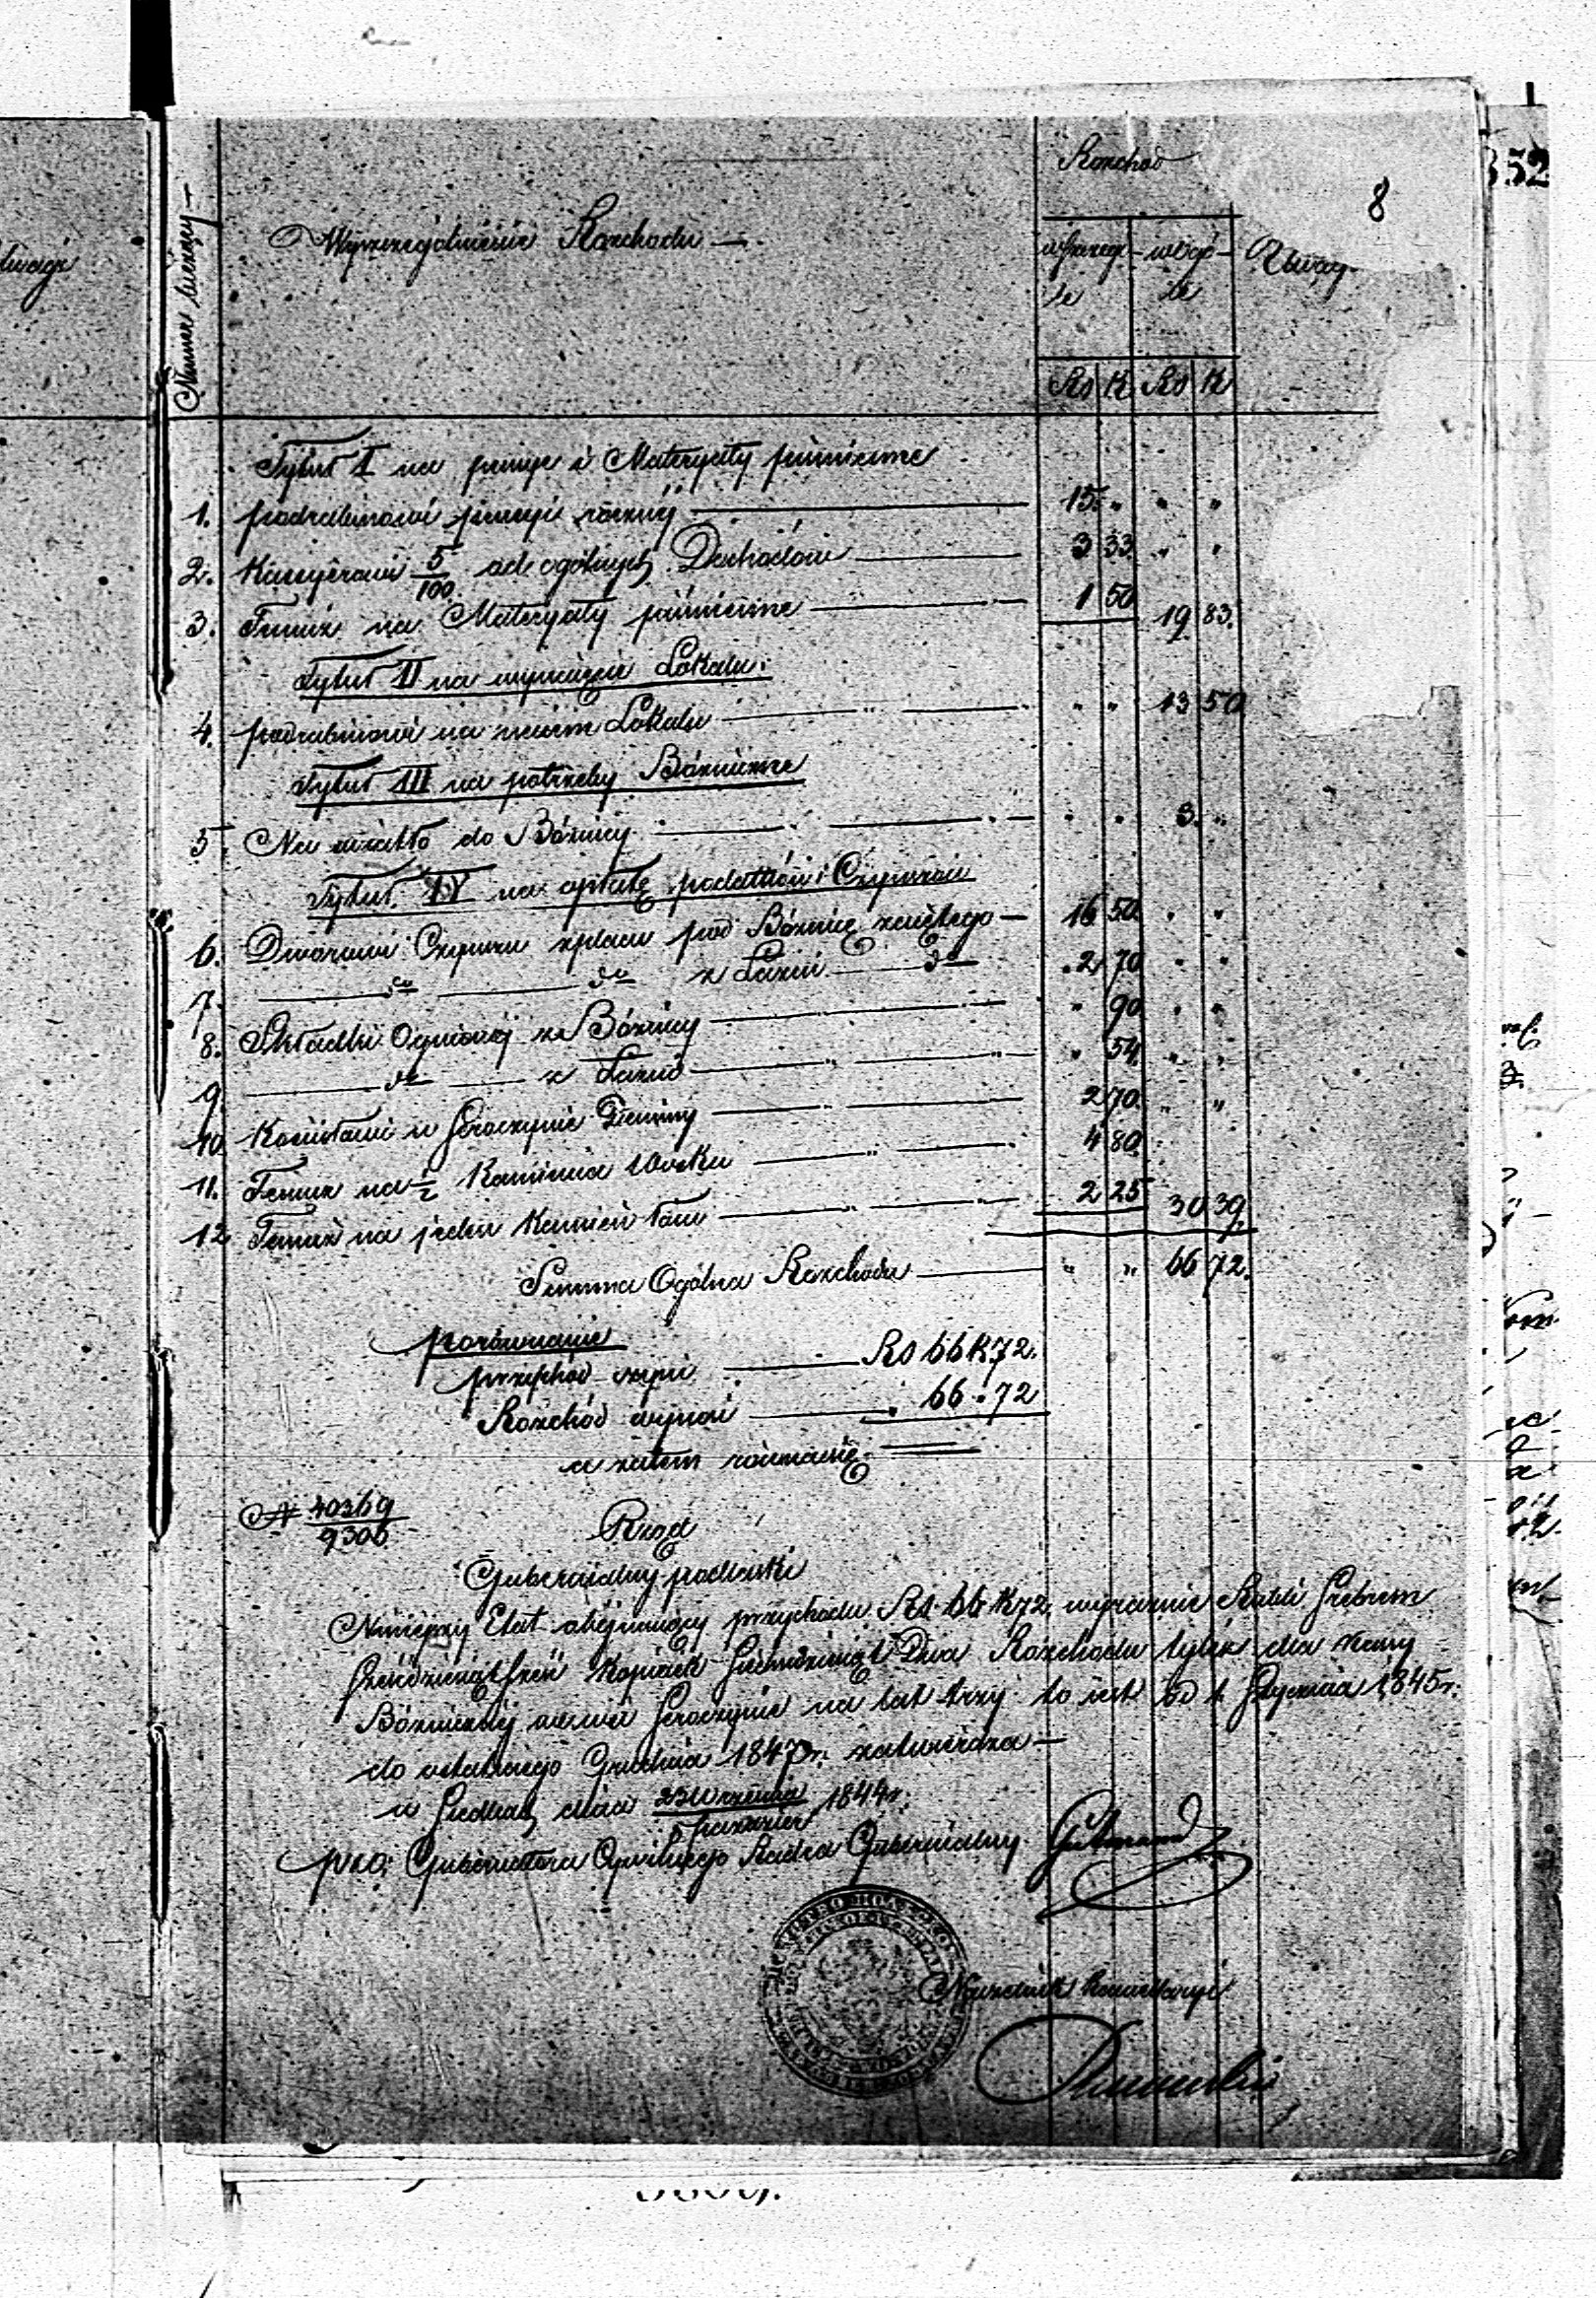 8
352
Rozchod
Numer bieżący
Wyszczegolnienie Rozchodu
wszczegó- wogó- Uwag
le le
Rs K Rs K
Tytuł I na pensye i Materyały piśmienne
1. podrabinowi pensyi roczney 15. " " "
2. Kassyerowi 5/100 od ogólnych Dochodów 3 33 " "
3. Temuż na Materyały piśmienne 1 50 19 83.
Tytuł II na wynajęcie Lokalu
4. podrabinowi na najem Lokalu " " 13 50
Tytuł III na potrzeby Bóżniczne
5. Na światło do Bóżnicy " " 3. "
Tytuł IV na opłatę podatków i Czynszów
6. Dworowi Czynszu z placu pod Bóżnicę zajętego 16 50 " "
7. do do z Łazni do 2 70 " "
8. Składki Ogniowej z Bóżnicy " 90 " "
9. do z Łazni " 54 " "
10. Kościołowi w Seroczynie Daniny 2 70 " "
11. Temuż na ½ Kamienia Wosku 4 80
12 Temuż na jeden Kamień łoiu 2 25 30 39.
Summa Ogólna Rozchodu " " 66 72.
porównanie
przychód czyni Rs 66 K 72.
Rozchód wynosi " 66 " 72
a zatem równa się
N 40369/9306
Rząd
Gubernialny podlaski
Niniejszy Etat obejmujący przychodu Rs 66 K 72, wyraznie Rubli Srebrem
sześćdziesiąt sześć Kopiiek siedmdziesiąt Dwa Rozchodu tyleż dla Kassy
Bóżniczney we wsi Seroczynie na lat trzy to iest od 1 Stycznia 1845 r.
do ostatniego Grudnia 1847 r. zatwierdza
w Siedlcach dnia 23 Września/5 pazdzier 1844 r.
pzo: Gubernatora Cywilnego Radca Gubernialny
Naczelnik Kancellaryi